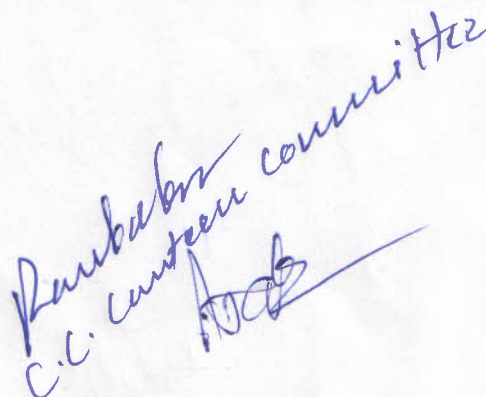 Rambabu
C.C. Canteen committee